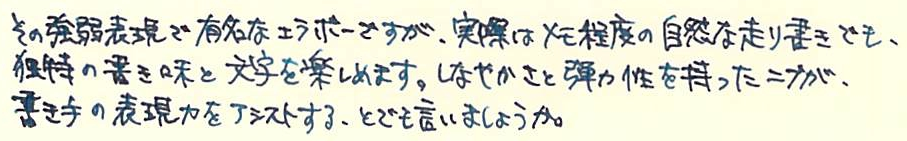 その強弱表現で有名なエラボーですが、実際はメモ程度の自然な走り書きでも、
独特の書き味と文字を楽しめます。しなやかさと弾力性を持ったニブが、
書き手の表現力をアシストする、とでも言いましょうか。